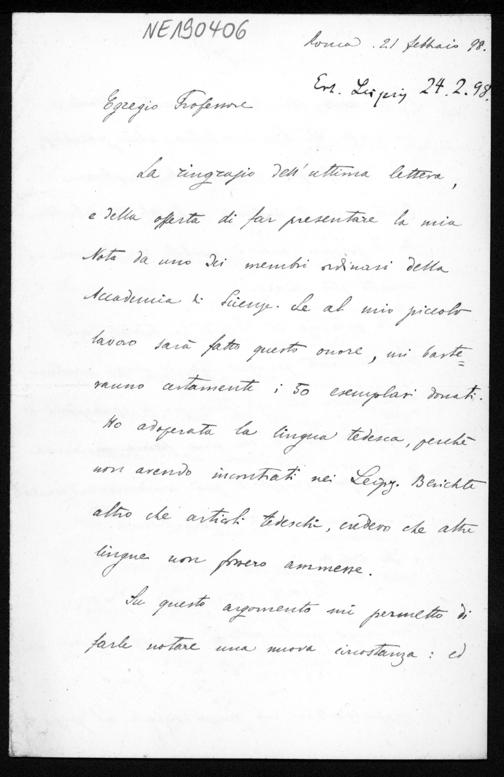 NE190406
Roma . 21 febbraio 98.
Erh. Leipzig 24.2.98.
Egregio Professore
La ringrazio dell'ultima lettera,
e della offerta di far presentare la mia
Nota da uno dei membri ordinari della
Accademia di Scienze. Se al mio piccolo
lavoro sarà fatto questo onore, mi baste=
ranno certamente i 50 esemplari donati.
Ho adoperata la lingua tedesca, perchè
non avendo incontrati nei Leipz. Berichte
altro che articoli tedeschi, credevo che altre
lingue non fossero ammesse.
Su questo argomento mi permetto di
farle notare una nuova circostanza: ed